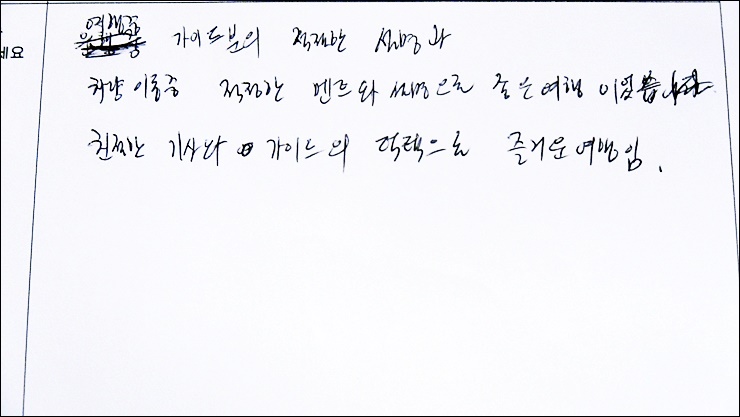 여행중 가이드분의 적절한 설명과
세요
차량이동중 적절한 멘트와 설명으로 좋은여행 이었습니다
친절한 기사와 가이드의 덕택으로 즐거운여행임.